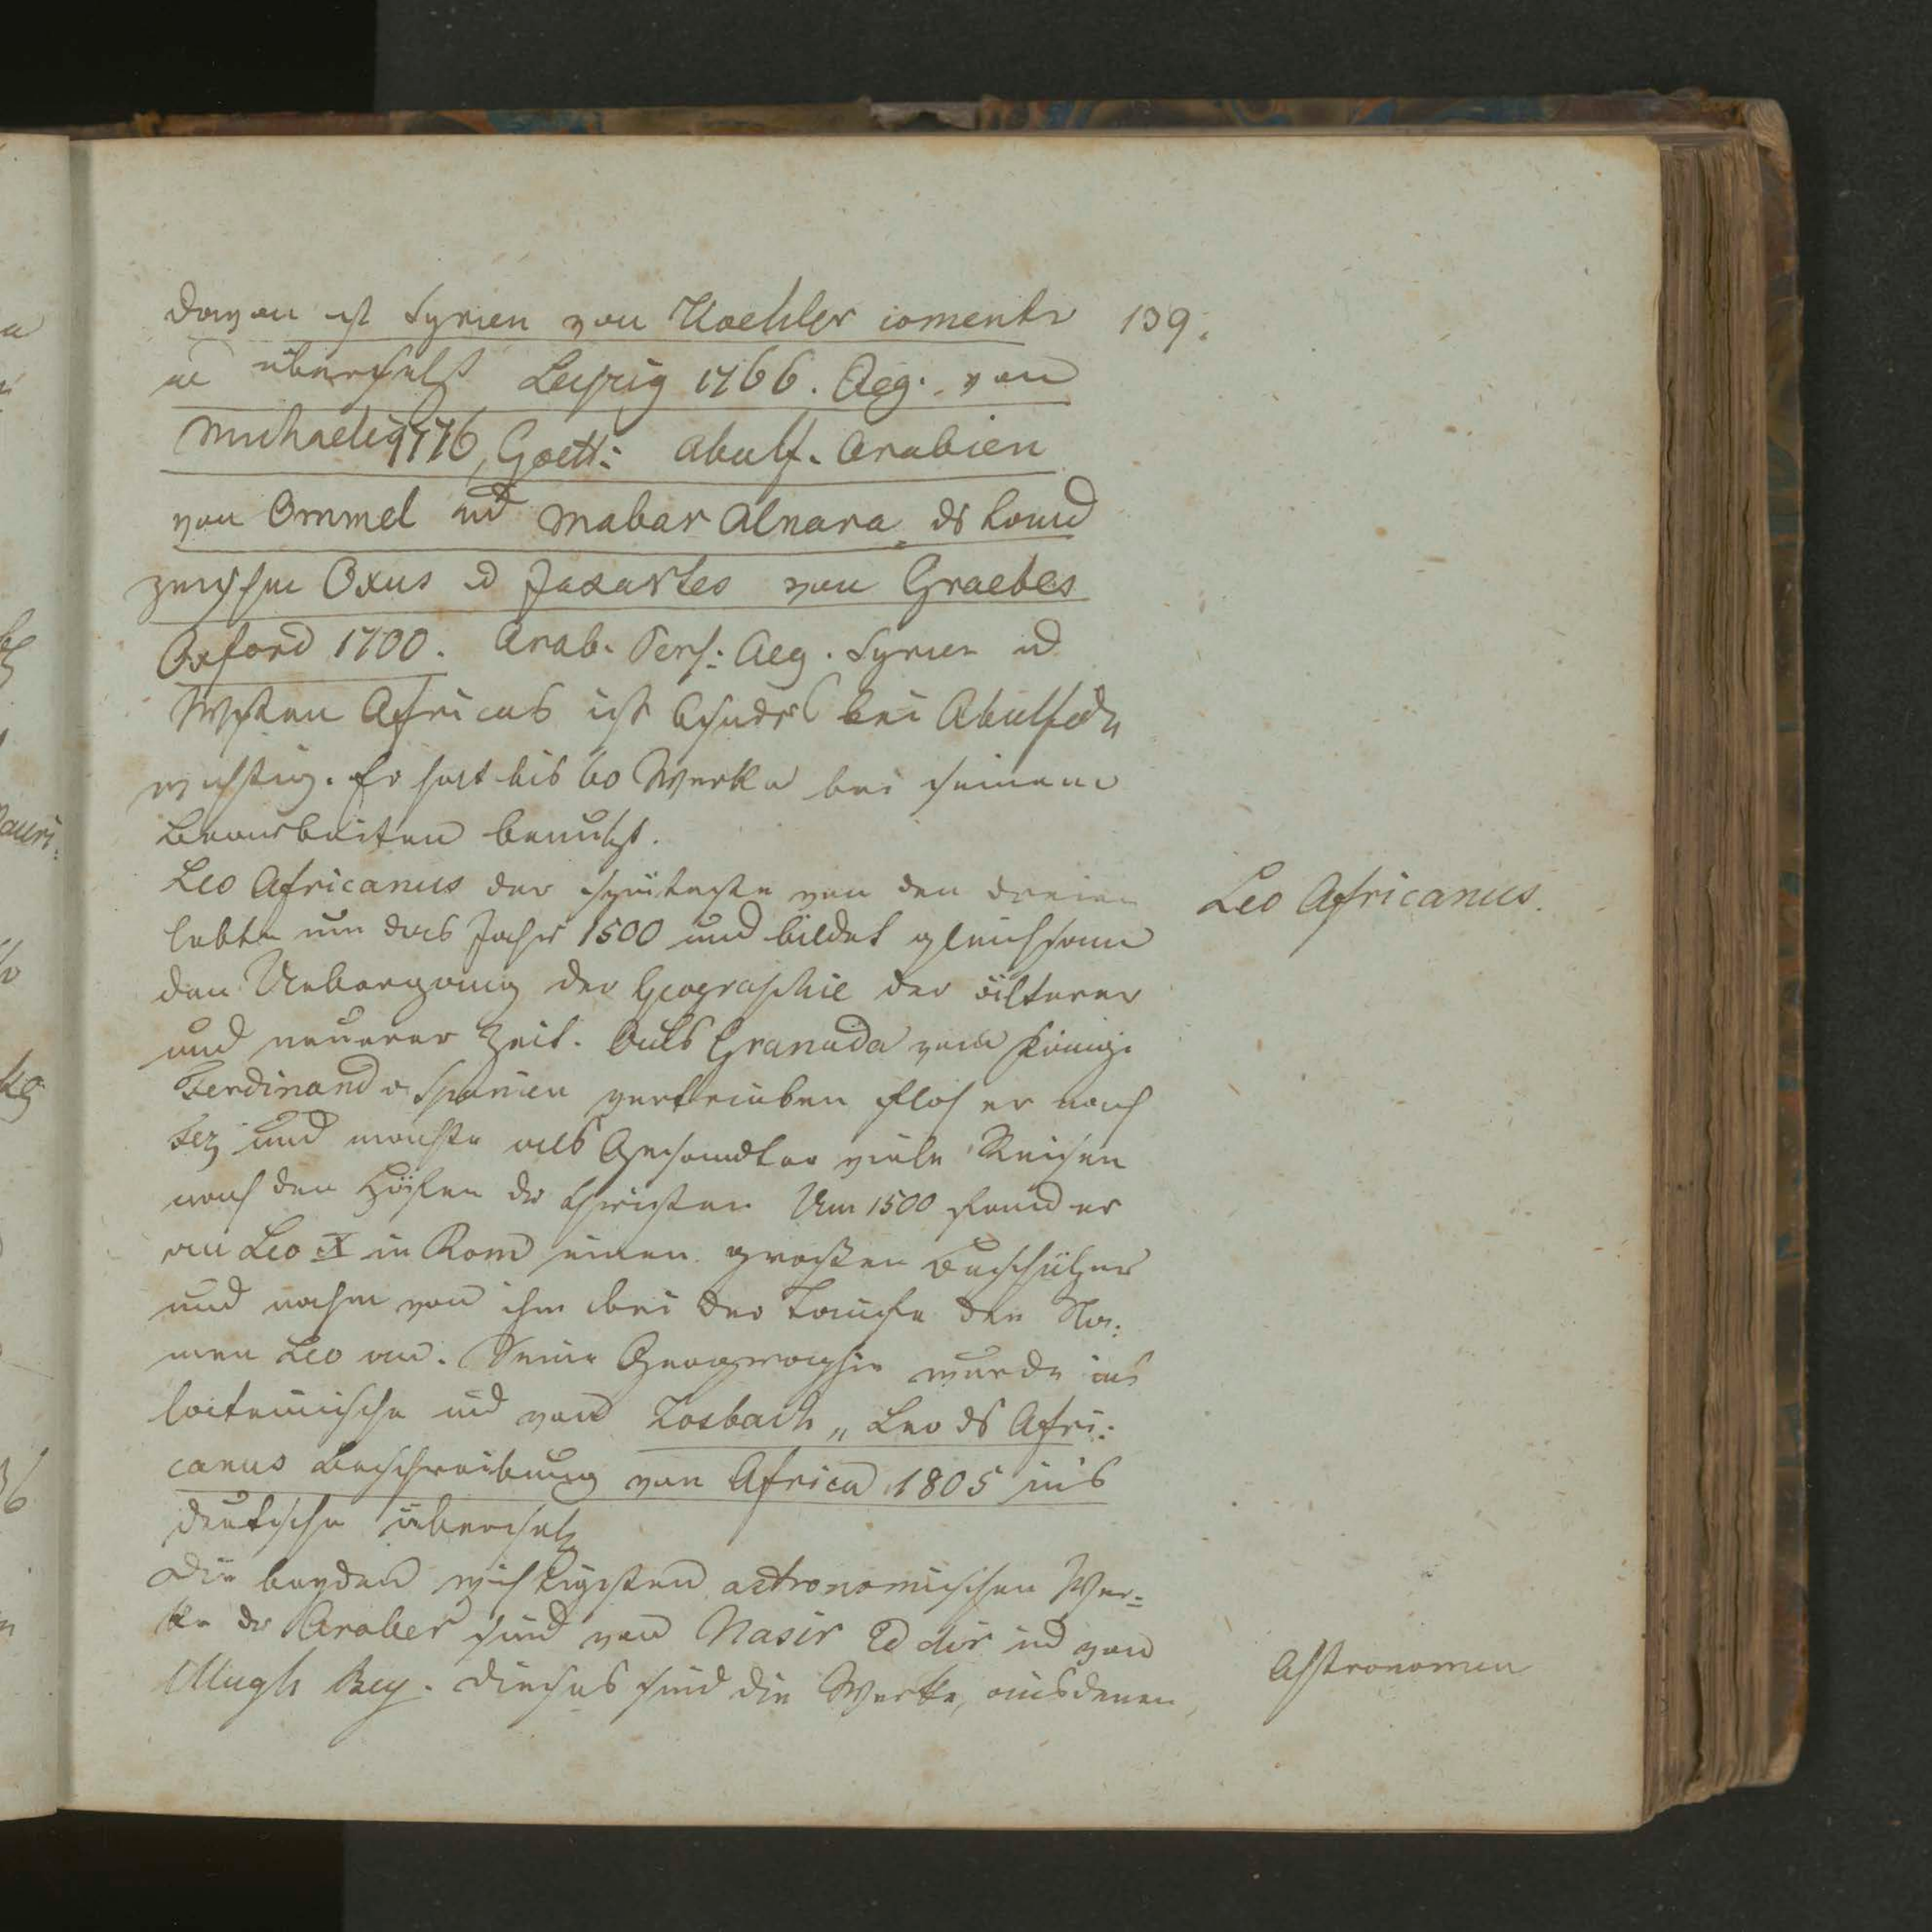 davon ist Syrien von Koehler coment
u übersetzt Leipzig 1766. Aeg. von
Michaelis 1776, Goett: Abulf. Arabien
von Ommel und Mabar Alnara ds Land
zwischen Oxus u Jaxartes von Graebes
Oxford 1700. Arab. Pers: Aeg. Syrien u
Westen Africas ist besonders bei Abulfeda
wichtig. Er hat bis 60 Werke bei seinem
Bearbeiten benutzt.
Leo Africanus der späteste von den dreien
lebte um das Jahr 1500 und bildet gleichsam
den Uebergang der Geographie der älterer
und neuerer Zeit. Aus Granada vom König
Ferdinand v Spanien vertrieben floh er nach
Fez und machte als Gesandter viele Reisen
nach den Höfen der Christen Um 1500 fand er
an Leo X in Rom einen großen Beschützer
und nahm von ihm bei der Taufe den Na:
men Leo an. Seine Geographie wurde ins
lateinische und von Losbach „ Leo ds Afri:
canus Beschreibung von Africa 1805 in's
deutsche übersetz
Die beyden wichtigsten astronomischen Wer=
ke der Araber sind von Nasir Ed dir und von
Ulugh Bey. Dieses sind die Werke, aus denen
139.
Leo Africanus.
Astronomen